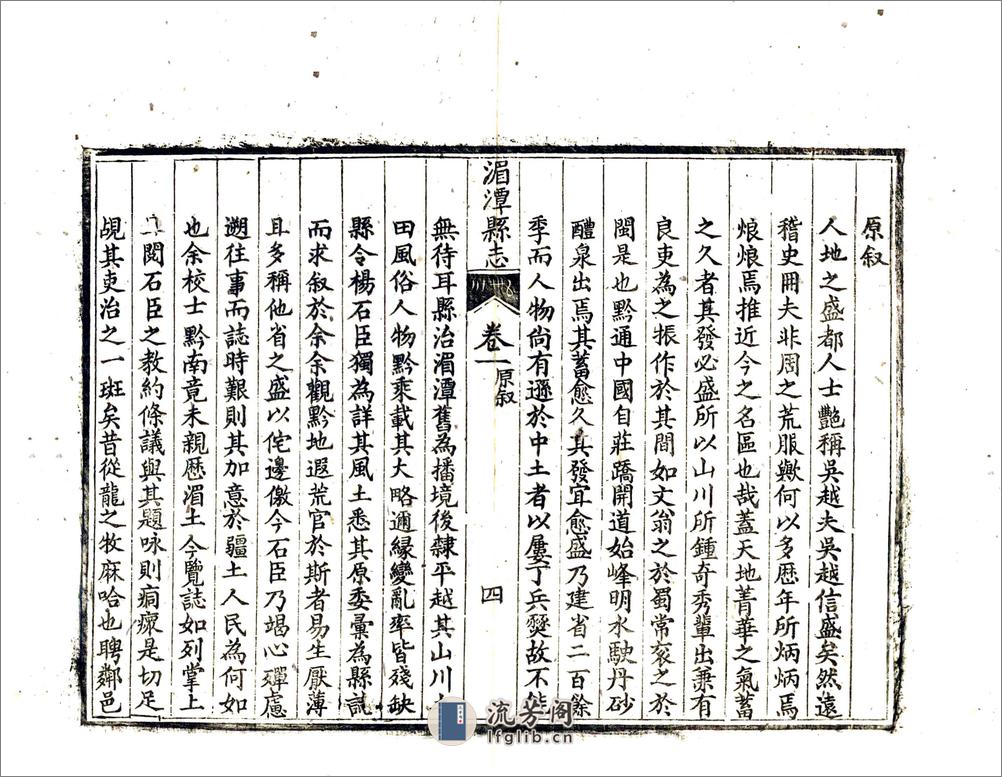 原叙
人地之盛都人士艷稱吳越夫吳越信盛矣然遠
稽史冊夫非周之荒服歟何以多歷年所炳炳焉
烺烺焉推近今之名區也哉蓋天地菁華之氣蓄
之久者其發必盛所以山川所鍾奇秀輩出兼有
良吏為之振作於其間如文翁之於蜀常袞之於
閩是也黔通中國自莊蹻開道始峰明水駛丹砂
醴泉出焉其蓄愈久其發宜愈盛乃建省二百餘
季而人物尚有遜於中土者以屢丁兵燹故不能
湄潭縣志
卷一
原叙
四
無待耳縣治湄潭舊為播境後隸平越其山川土
田風俗人物黔乘載其大略邇緣變亂率皆殘缺
縣令楊石臣獨為詳其風土悉其原委彙為縣誌
而求叙於余余觀黔地遐荒官於斯者易生厭薄
且多稱他省之盛以侘邊徼今石臣乃竭心殫慮
遡往事而誌時艱則其加意於疆土人民為何如
也余校士黔南竟未親歷湄土今覽誌如列掌上
閱石臣之教約條議與其題咏則痌瘝是切足
覘其吏治之一班矣昔從龍之牧麻哈也聘鄰邑
流芳阁
lfglib.cn